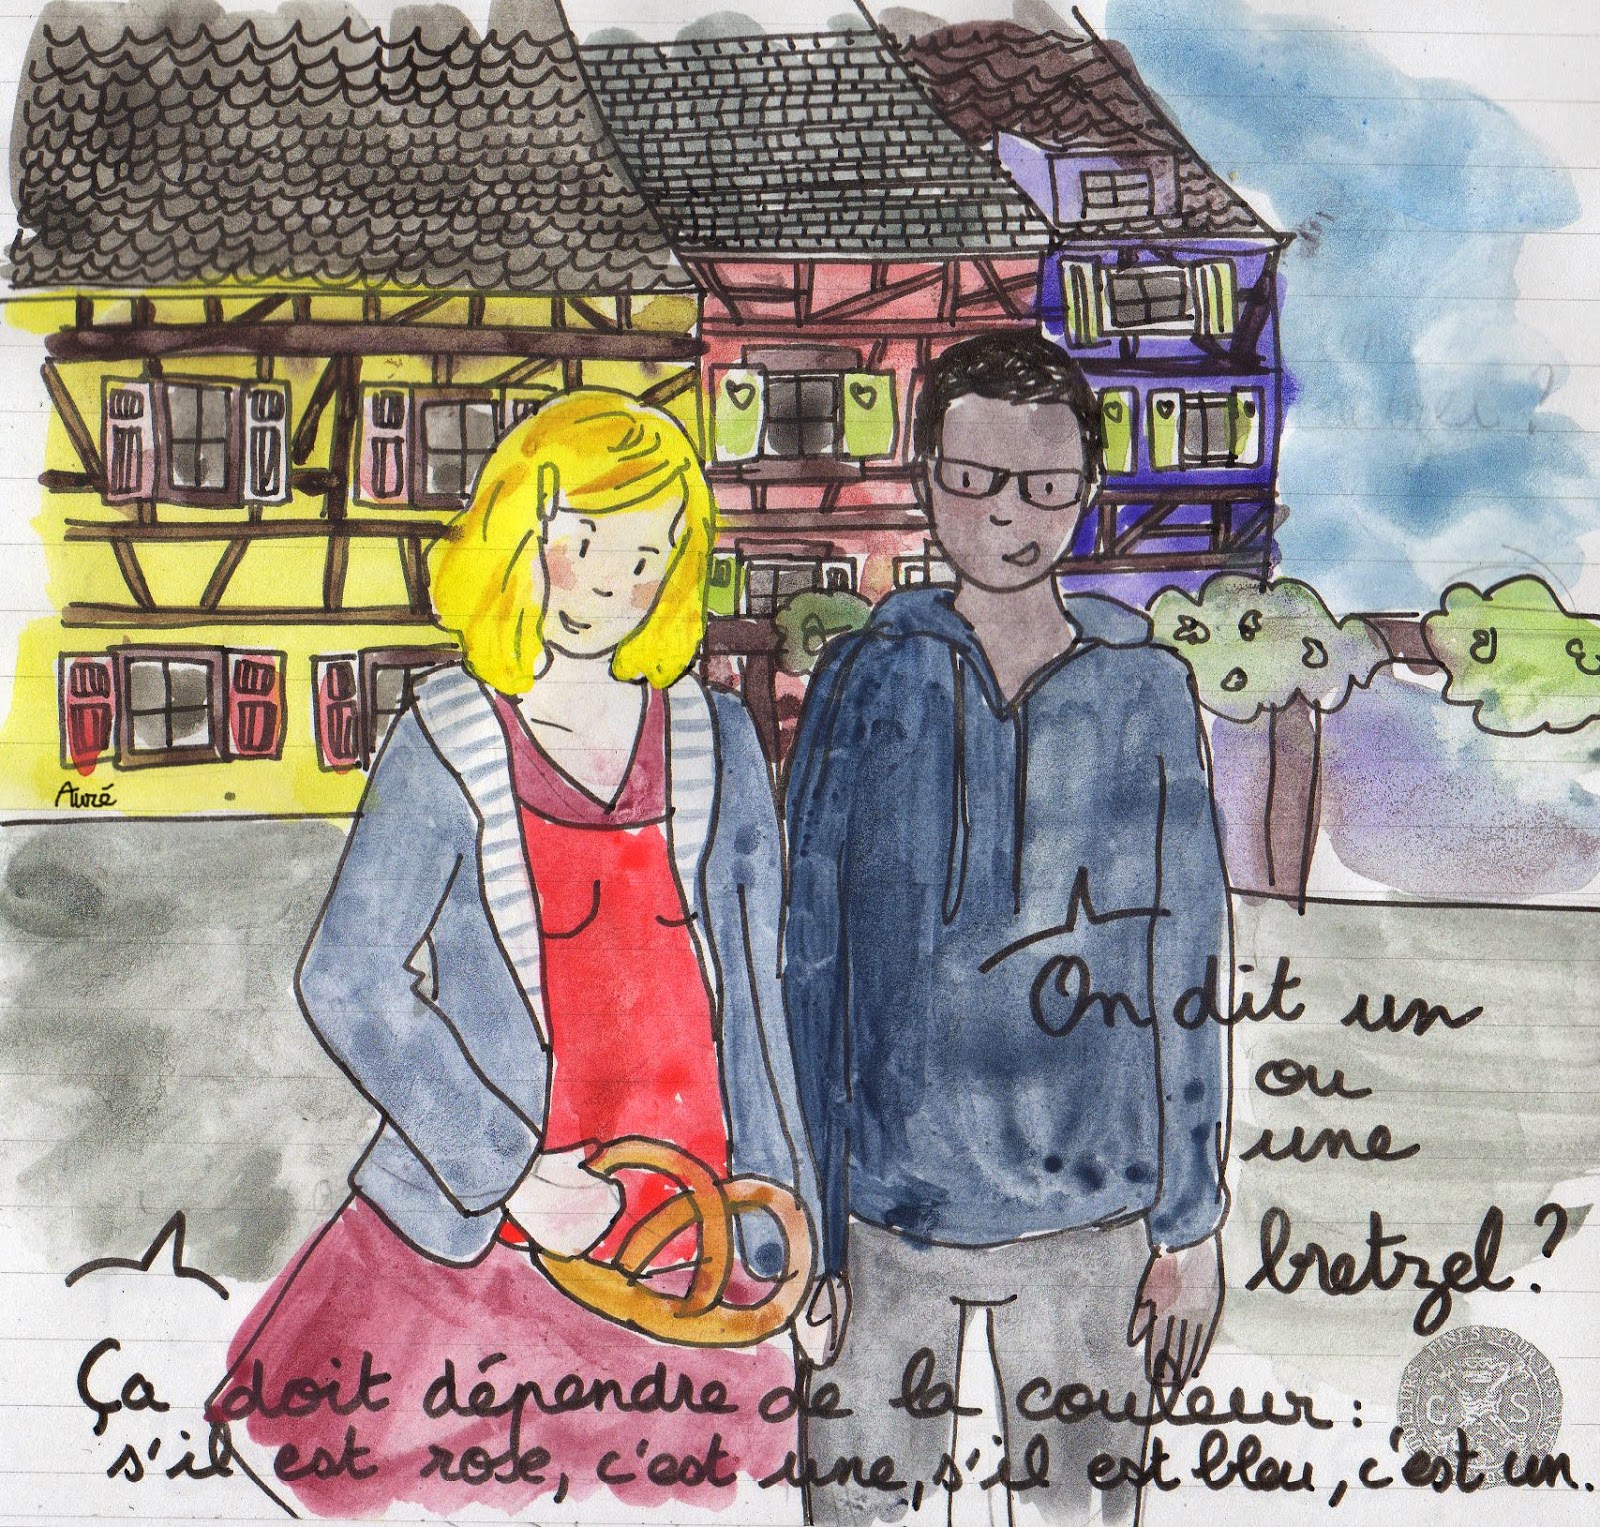 Auré
On dit un
ou
une
bretzel?
Ça doit dépendre de la couleur:
s'il est rose, c'est une, s'il est bleu, c'est un.
G S